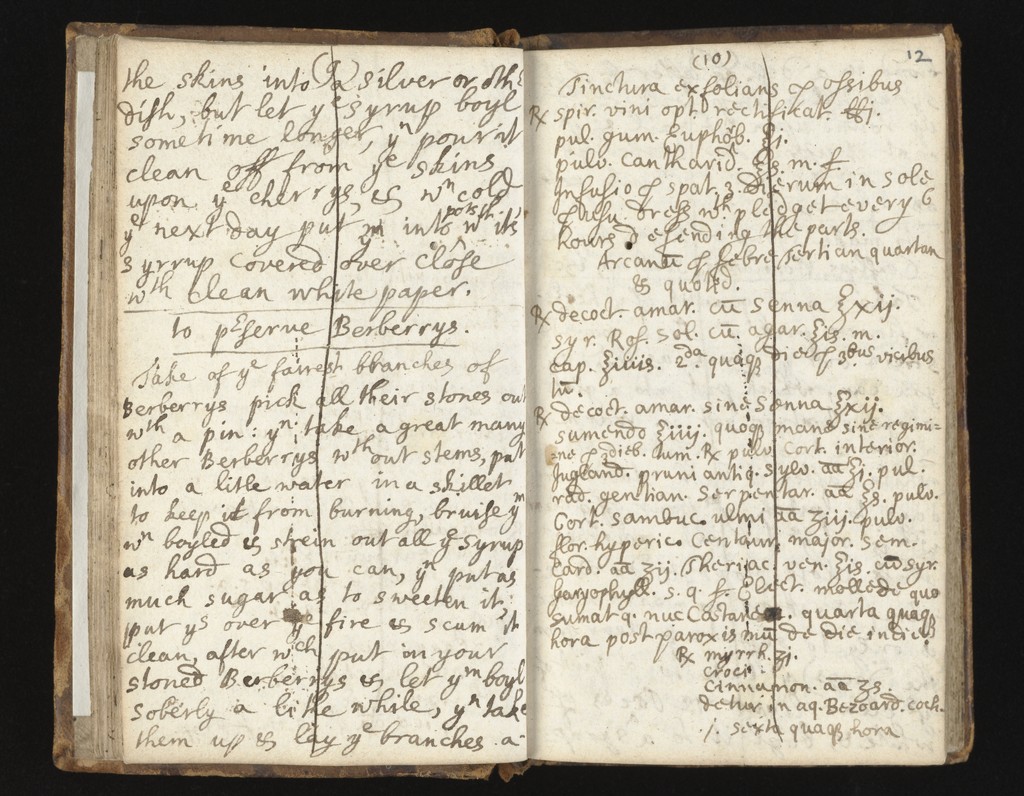 the skins into a silver or oth
dish, but let yͤ syrup boyl
sometime longer, yⁿ pour it
clean off from yͤ skins
upon yͤ cherrys, & wⁿ cold
yͤ next day put yᵐ into pots wᵗʰ its
syrrup covered over close
wᵗʰ clean white paper.
to pʳserve Berberrys.
Take of yͤ fairest branches of
Berberrys pick all their stones out
wᵗʰ a pin: yⁿ take a great many
other Berberrys wᵗʰout stems, put
into a litle water in a skillet
to keep it from burning, bruise yᵐ
wⁿ boyled & strein out all yͤ syrup
as hard as you can, yⁿ put as
much sugar as to sweeten it
put yˢ over yͤ fire & scum it
clean, after wᶜʰ put in your
stoned Berberrys & let yᵐ boyl
soberly a litle while, yⁿ take
them up & lay yͤ branches a
(10) 12
Tinctura exfolians p ossibus
℞ spir. vini opt. rectificat. ℔j.
pul. gum. Euphob. ℥j.
pulv. Cantharid. ℥s. m. f.
Infusio p spat. 3. dierum in sole
p usu. dress wᵗʰ pledget every 6
hours defending the parts.
Arcanū p febre tertian quartan
& quotid.
℞ decoct. amar. cū Senna ℥xij.
syr. Ros. sol. cū. agar. ℥is. m.
cap. ℥iiiis. 2ᵈᵃ quaq die p 3ᵇᵘˢ vicibus
tū.
℞ decoct. amar. sine Senna ℥xij.
sumendo ℥iiij. quoq mane sine regimi=
ne p 3 dieb. tum. ℞ pulv. Cort. interior.
Jugland. pruni antiq. sylv. aā ℥j. pul.
rad. gentian. Serpentar. aā ℥s. pulv.
Cort. sambuc. ulmi aā ʒiij. pulv.
flor. hyperic. Centaur. major. sem.
Card. aā ʒij. Theriac. ven. ℥is. cū syr.
garyophyll. s. q. f. Elect. molle de quo
sumat q. nuc Castaneæ. quarta quaq
hora post paroxismū de die indies
℞ myrrh. ʒj.
croci
Cinnamon. aā ʒs.
detur in aq. Bezoard. coch.
j. sexta quaq hora